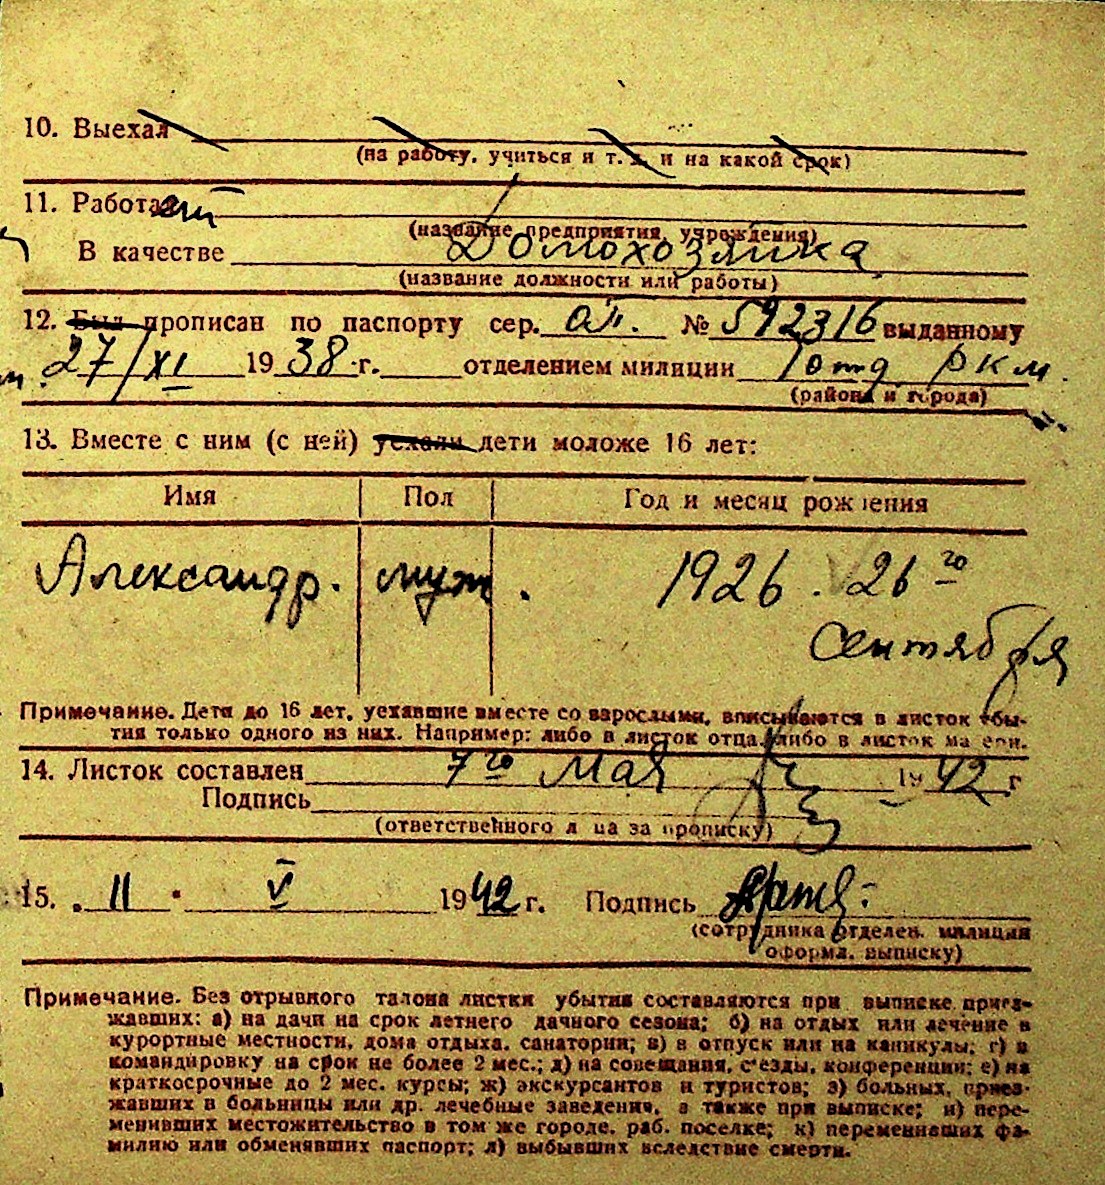 10. Выехал
(на работу, учиться и т. д. и на какой срок)
11. Работает
(название предприятия, учреждения)
В качестве Домохозяйка
(название должности или работы)
12. Был прописан по паспорту сер. № 592316 выданному
27/XI 1938 г. отделением милиции 1 отд РКМ.
(района и города)
13. Вместе с ним (с ней) уехали дети моложе 16 лет:
Имя Пол Год и месяц рождения
Александр. муж. 1926. 26го
сентября
Примечание. Дети до 16 лет, уехавшие вместе со взрослыми, вписываются в листок убы-
тия только одного из них. Например: либо в листок отца, либо в листок матери.
14. Листок составлен 7го Мая 1942 г
Подпись
(ответственного лица за прописку)
15. „ 11 " V 1942 г. Подпись
(сотрудника отделен. милиции
оформл. выписку)
Примечание. Без отрывного талона листки убытия составляются при выписке приез-
жавших: а) на дачи на срок летнего дачного сезона; б) на отдых или лечение в
курортные местности, дома отдыха, санатории; в) в отпуск или на каникулы; г) в
командировку на срок не более 2 мес.; д) на совещания, съезды, конференции; е) на
краткосрочные до 2 мес. курсы; ж) экскурсантов и туристов; з) больных, приез-
жавших в больницы или др. лечебные заведения, а также при выписке; и) пере-
менивших местожительство в том же городе, раб. поселке; к) переменивших фа-
милию или обменявших паспорт; л) выбывших вследствие смерти.